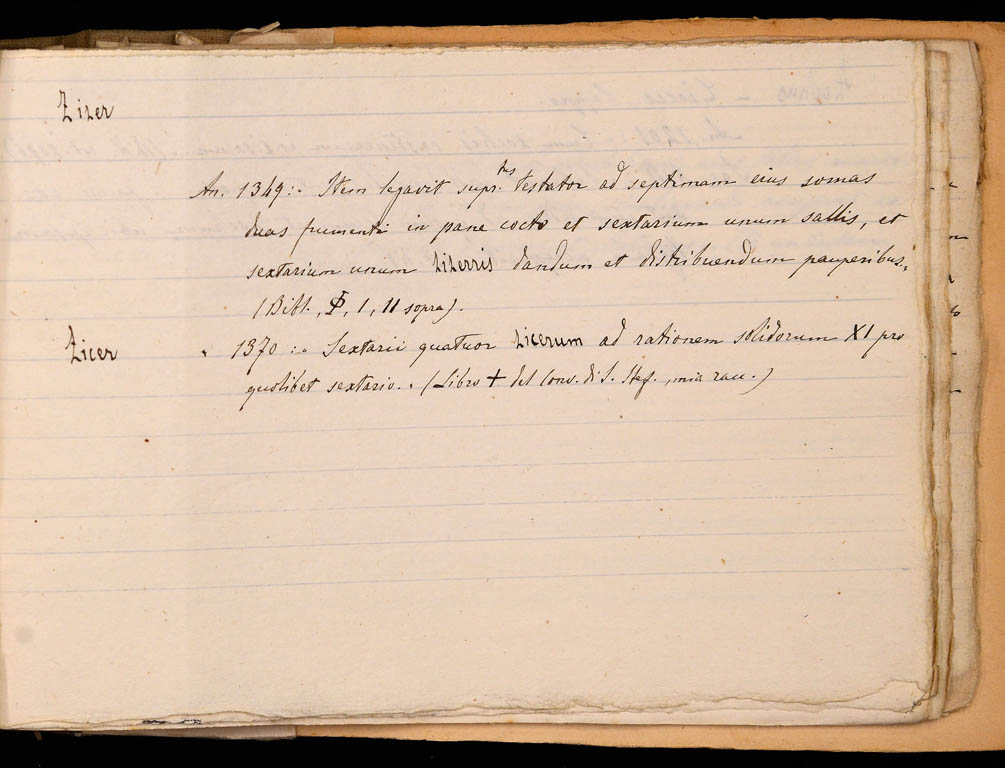 Zizer
An. 1349:- Item legavit supr.tus testator ad septimam eius somas
duas frumenti in pane cocto et sextarium unum sallis, et
sextarium unum zizerris dandum et distribuendum pauperibus.
(Bibl., I, 11 sopra).
Zicer
" 1370:- Sextarii quatuor zicerum ad rationem solidorum XI pro
quolibet sextario.. (Libro + del Conv. di S. Stef., mia racc.)